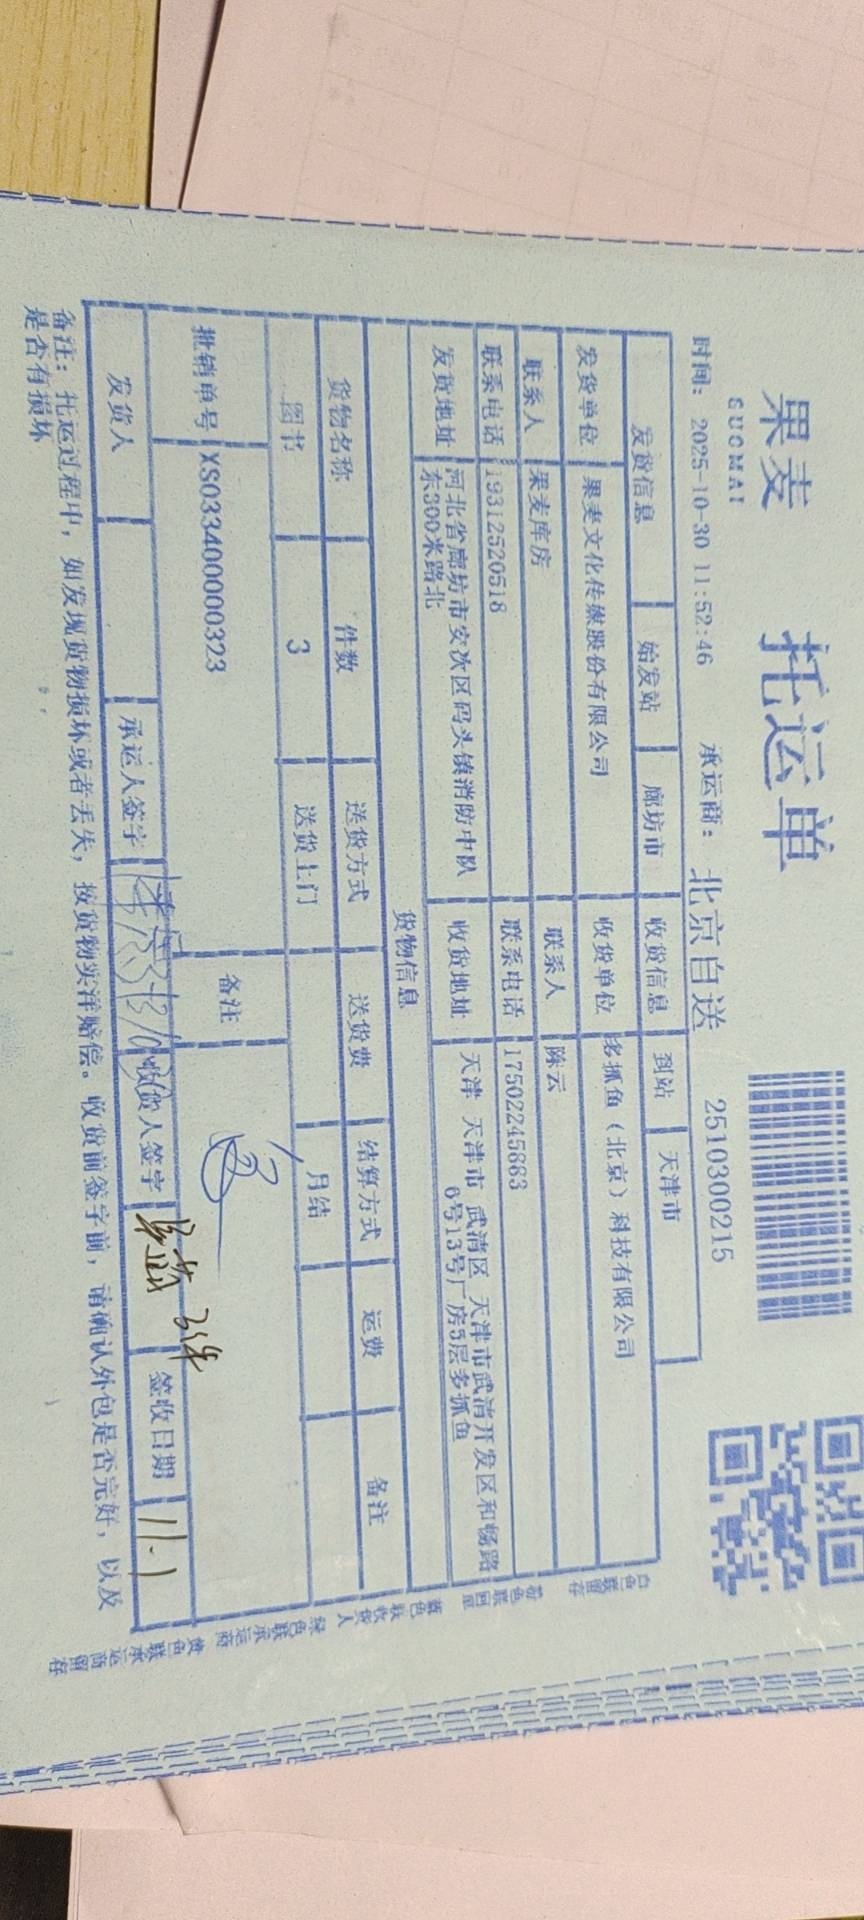 果麦
GUOMAI
托运单
时间: 2025-10-30 11:52:46 承运商: 北京自送 2510300215
发货信息 始发站 廊坊市 收货信息 到站 天津市
发货单位 果麦文化传媒股份有限公司 收货单位 多抓鱼(北京)科技有限公司
联系人 果麦库房 联系人 陈云
联系电话 19312520518 联系电话 17502245883
发货地址 河北省廊坊市安次区码头镇消防中队
东300米路北
收货地址 天津 天津市 武清区 天津市武清开发区和畅路
6号13号厂房5层多抓鱼
货物信息
货物名称 件数 送货方式 送货费 结算方式 运费 备注
图书 3 送货上门 月结
批销单号 XS033400000323 备注 ③
发货人 承运人签字 收货人签字 3件 签收日期 11-1
备注: 托运过程中, 如发现货物损坏或者丢失, 按货物实洋赔偿。收货前签字前, 请确认外包是否完好, 以及
是否有损坏
白色联留存
粉色联回单
蓝色联收货人
绿色联承运商
黄色联承运商留存